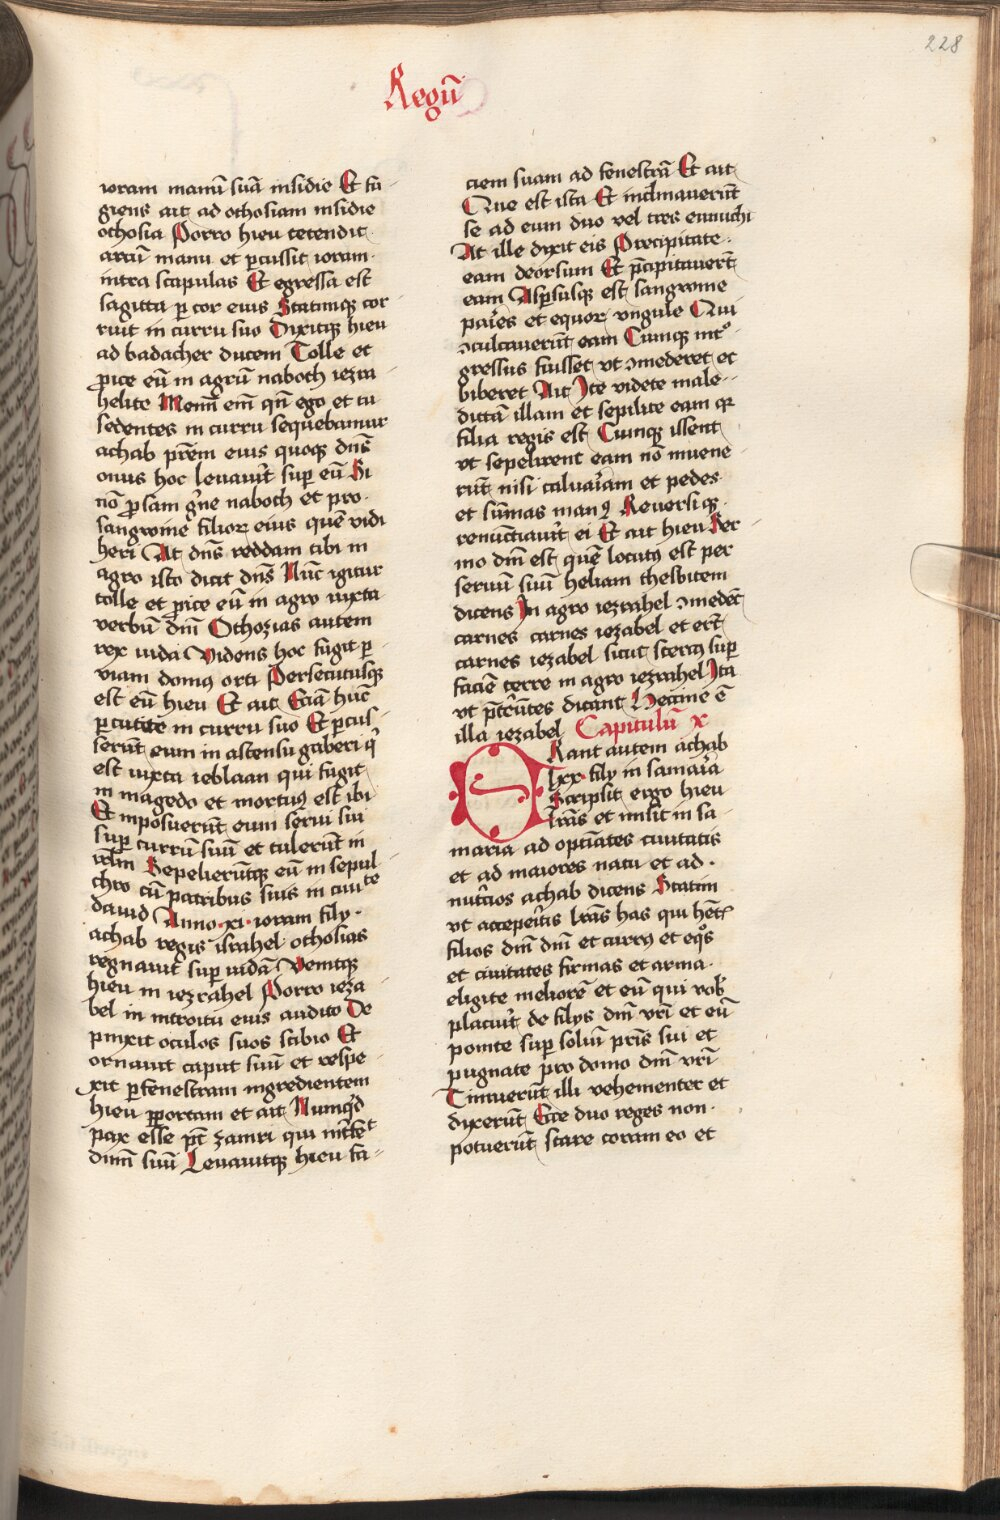 228
Regū
ioram manū suā insidie Et fu
giens ait ad othosiam insidie
othosia Porro hieu tetendit
arcū manu et ꝑcussit ioram
intra scapulas Et egressa est
sagitta ꝑ cor eius Statimqꝫ cor
ruit in curru suo Dixitqꝫ hieu
ad badacher ducem Tolle et
ꝓice eū in agrū naboth iezra
helite Memī em̄ qn̄ ego et tu
sedentes in curru sequebamur
achab pr̄em eius quoqꝫ dn̄s
onus hoc leuauit sup eū Si
nō ꝓ sam̄gne naboth et pro
sangwine filioꝝ eius quē vidi
heri Ait dn̄s reddam tibi in
agro isto dicit dn̄s Nūc igitur
tolle et ꝓice eū in agro iuxta
verbū dn̄i Othozias autem
rex iuda Videns hoc fugit ꝑ
viam domꝰ orti Persecutusqꝫ
est eū hieu Et ait Eciā hūc
ꝑcutite in curru suo Et ꝑcus
serūt eum in astensu gaberi q̇
est iuxta ieblaan qui fugit
in magedo et mortuꝰ est ibi
Et imposuerūt eum serui sui
sup currū suū et tulerūt in
irl̄m Sepelieruntqꝫ eū in sepul
chro cū patribus suis in ciuite
dauid Anno ·xi· ioram fily
achab regis israhel othosias
regnauit sup iudā Venitqꝫ
hieu in iezrahel Porro ieza
bel in introitu eius audito De
pinxit oculos suos stibio Et
ornauit caput suū et respe
xit ꝑ fenestram ingredientem
hieu ꝑ portam et ait Numqͥd
pax esse pt̄ zamri qui int̄fet
dnm̄ suū Leuauitqꝫ hieu fa
ciem suam ad fenestrā Et ait
Que est ista Et inclinauerūt
se ad eum duo vel tres eunuchi
At ille dixit eis Precipitate
eam deorsum Et p̄cipitauerūt
eam Asꝑsusqꝫ est sangwine
paries et equoꝝ vngule Qui
ꝯculcauerūt eam Cumqꝫ intͦ
gressus fuisset vt ꝯmederet et
biberet Ait Ite videte male
dictā illam et sepilite eam qꝛ
filia regis est Cumqꝫ issent
vt sepelirent eam nō inuene
rūt nisi caluariam et pedes
et sūmas manꝰ Reuersi qꝫ
renūctiauit ei Et ait hieu Ser
mo dn̄i est quē locutꝰ est per
seruū suū heliam thesbitem
dicens In agro iezrahel ꝯmedēt
carnes carnes iezabel et erūt
carnes iezabel sicut stercꝰ sup
faciē terre in agro iezrahel Ita
vt p̄tereūtes dicant Heccine ē
illa iezabel Capitulū x
ERant autem achab
lxx fily in samaria
Scripsit ergo hieu
lr̄as et misit in sa
maria ad optīates ciuitatis
et ad maiores natu et ad
nut̄cios achab dicens Statim
vt acceperitis lr̄as has qui hēt͛
filios dn̄i dn̄i et currꝰ et eqͦs
et ciuitates firmas et arma
eligite meliorē et eū qui vob̄
placuit de filys dn̄i vr̄i et eū
ponite sup soliū pr̄is sui et
pugnate pro domo dn̄i vr̄i
Timuerūt illi vehementer et
dixerūt Ecce duo reges non
potuerūt stare coram eo et